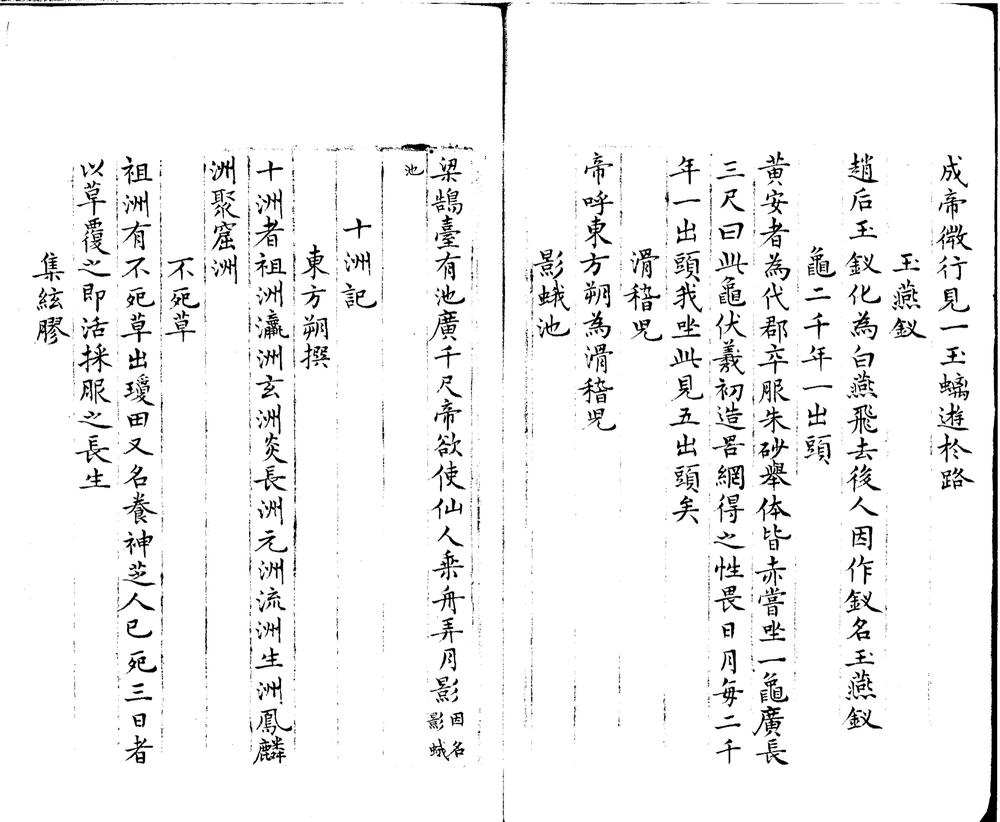 成帝微行見一玉螭遊於路
玉燕釵
趙后玉釵化為白燕飛去後人因作釵名玉燕釵
龜二千年一出頭
黄安者為代郡卒服朱砂舉体皆赤嘗坐一龜廣長
三尺曰此龜伏羲初造罟網得之性畏日月每二千
年一出頭我坐此見五出頭矣
滑稽児
帝呼東方朔為滑稽児
影蛾池
梁鵠臺有池廣千尺帝欲使仙人乗舟弄月影因名影蛾
池
十洲記
東方朔撰
十洲者祖洲瀛洲玄洲炎長洲元洲流洲生洲鳳麟
洲聚窟洲
不死草
祖洲有不死草出瓊田又名養神芝人已死三日者
以草覆之即活採服之長生
集絃膠